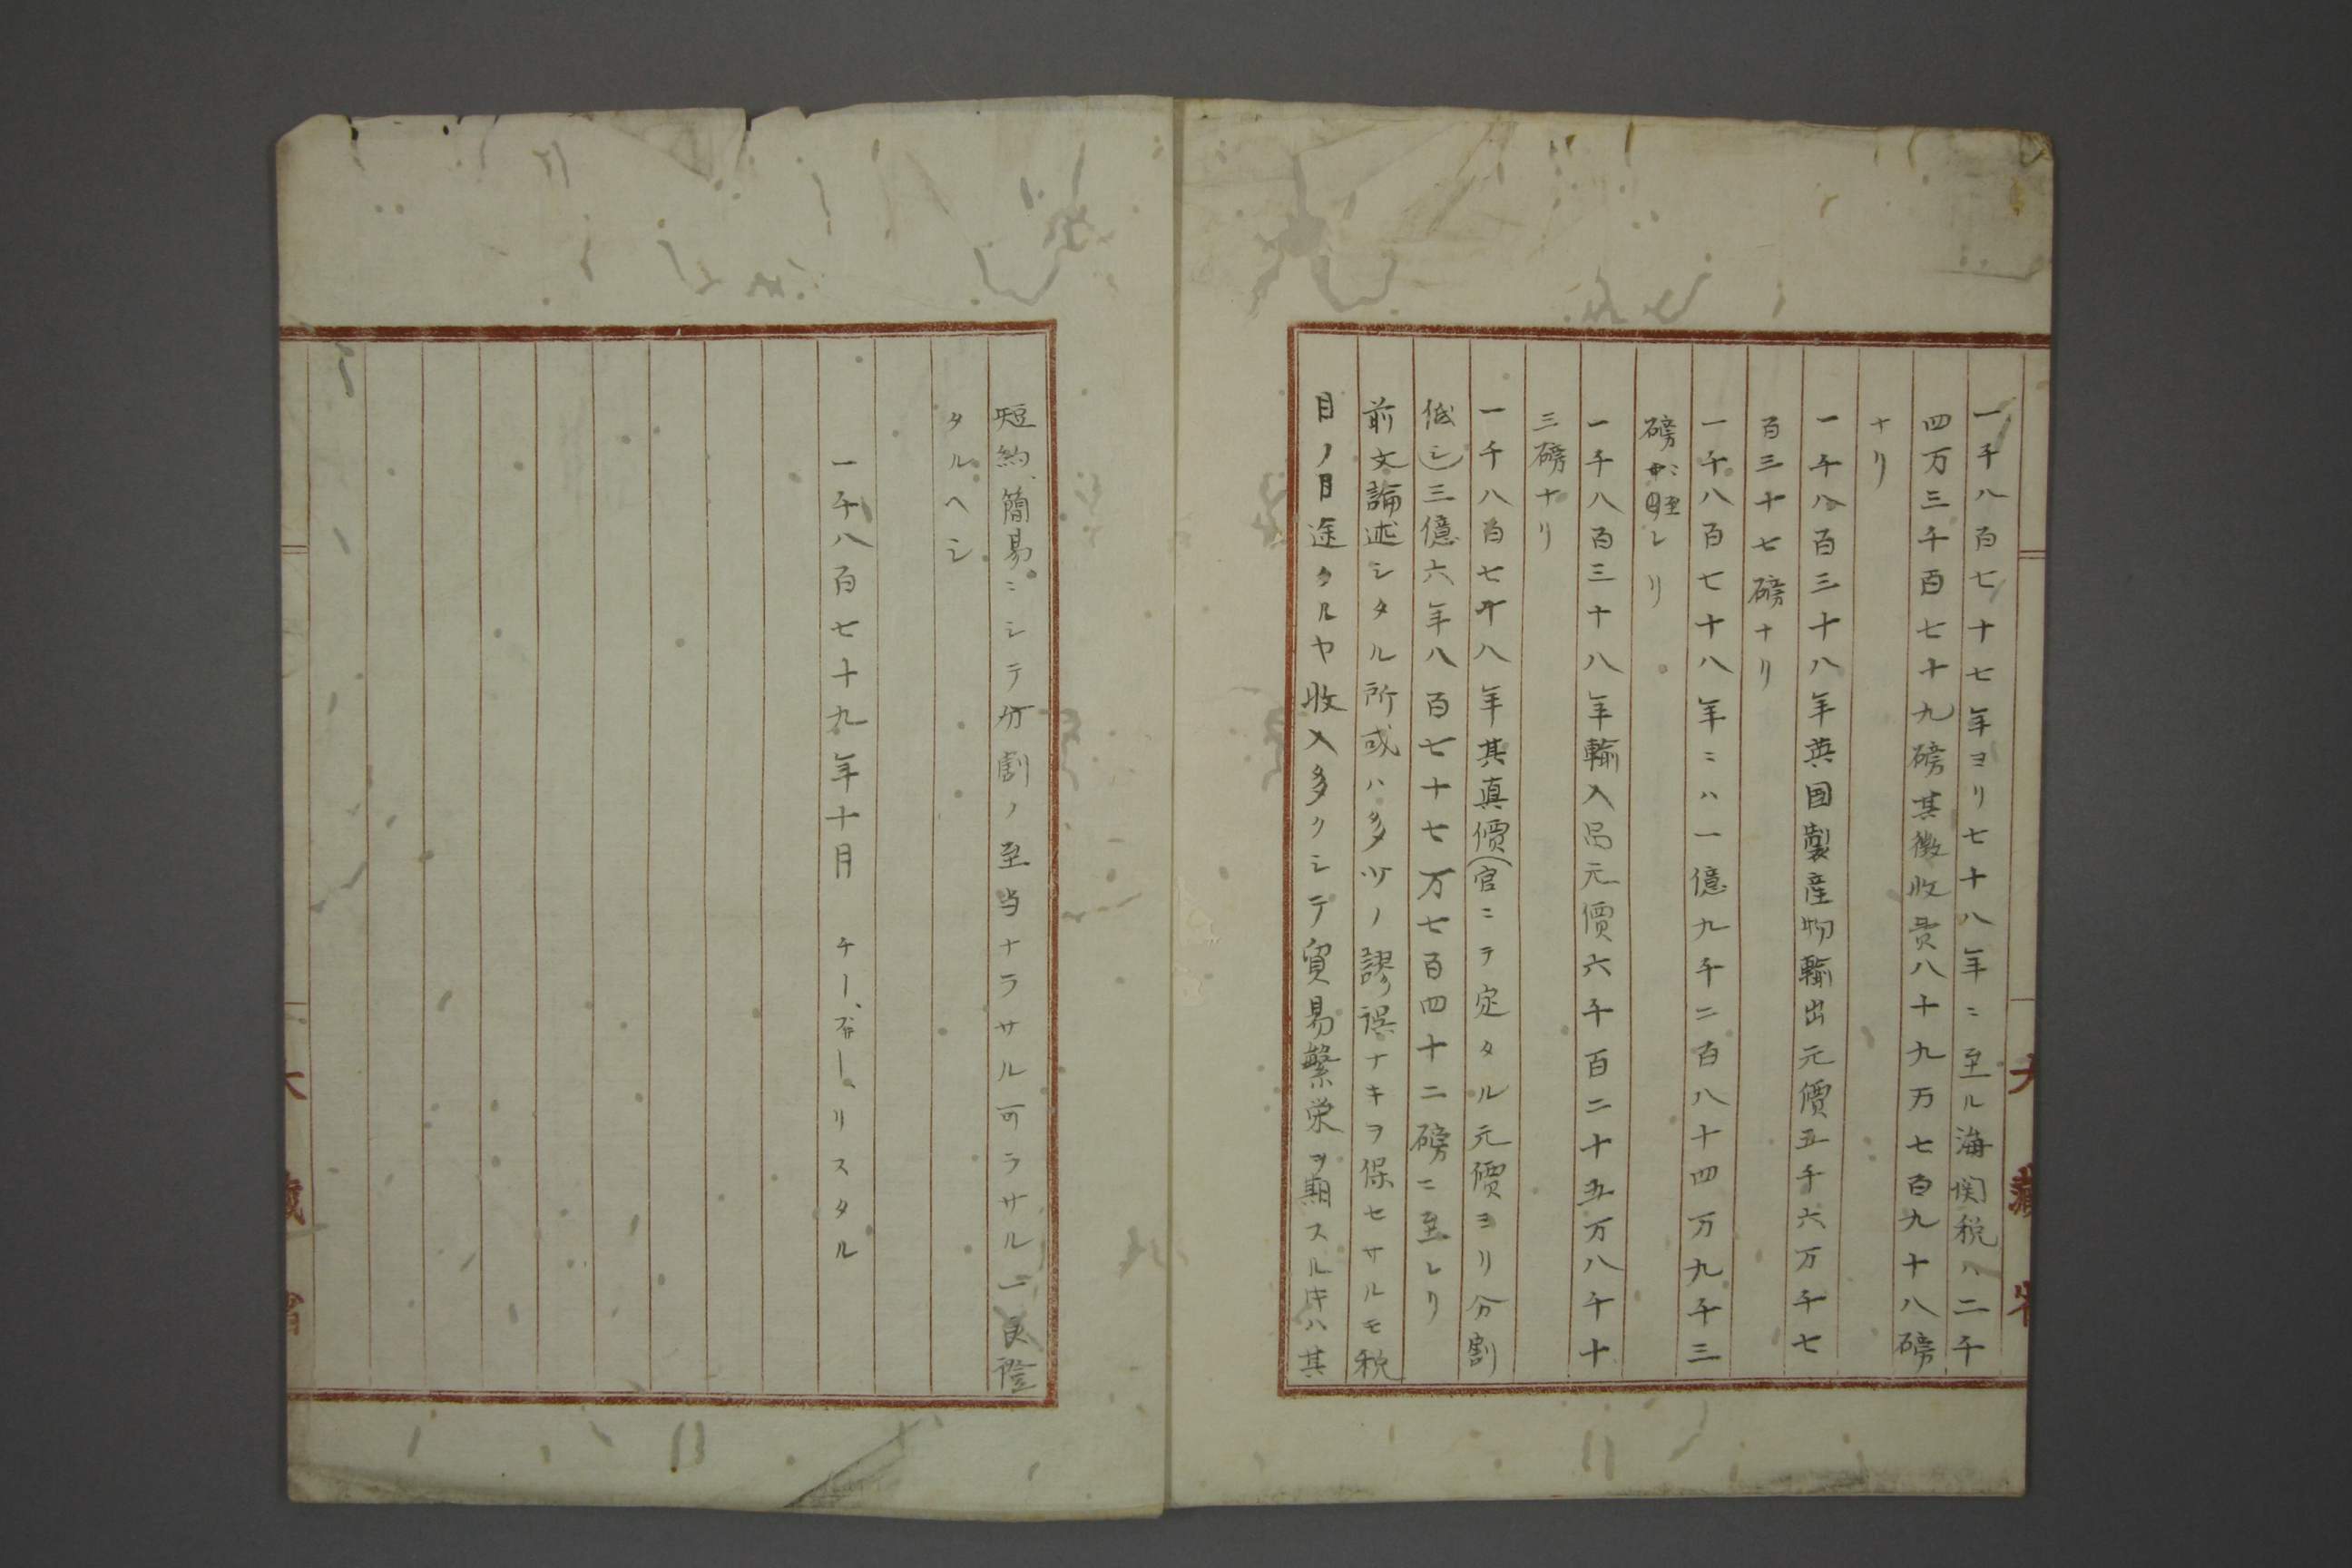 一千八百七十七年ヨリ七十八年ニ至ル海関税ハ二千
四万三千百七十九磅其徴收費八十九万七百九十八磅
ナリ
一千八百三十八年英国製産物輸出元價五千六万千七
百三十七磅ナリ
一千八百七十八年ニハ一億九千二百八十四万九千三
磅ニ昇レリ
一千八百三十八年輸入品元價六千百二十五万八千十
三磅ナリ
一千八百七十八年其真價(官ニテ定タル元價ヨリ分割
低シ)三億六年八百七十七万七百四十二磅ニ至レリ
前文論述シタル所或ハ多少ノ謬誤ナキヲ保セサルモ税
目ノ目途タルヤ收入多クシテ貿易繁栄ヲ期スルキハ其
大藏省
短約、簡易ニシテ分割ノ至当ナラサル可ラサルー良證
タルヘシ
一千八百七十九年十月　チー、ー、リスタル
大藏省